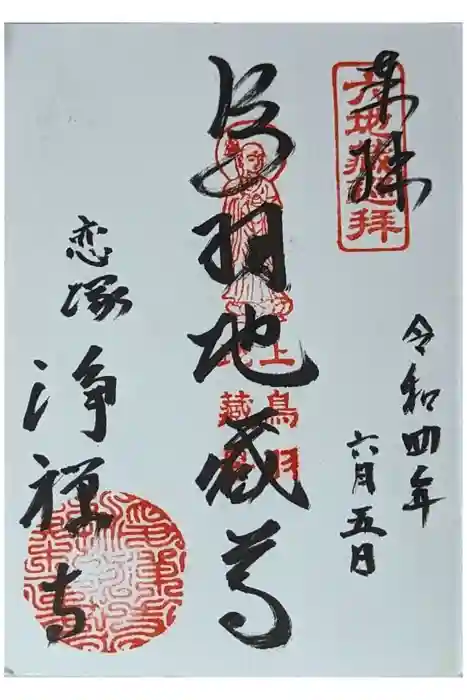 奉拝
六地蔵巡拝
令和四年
六月五日
鳥羽地蔵尊
上鳥羽
地蔵
恋塚
浄禅寺